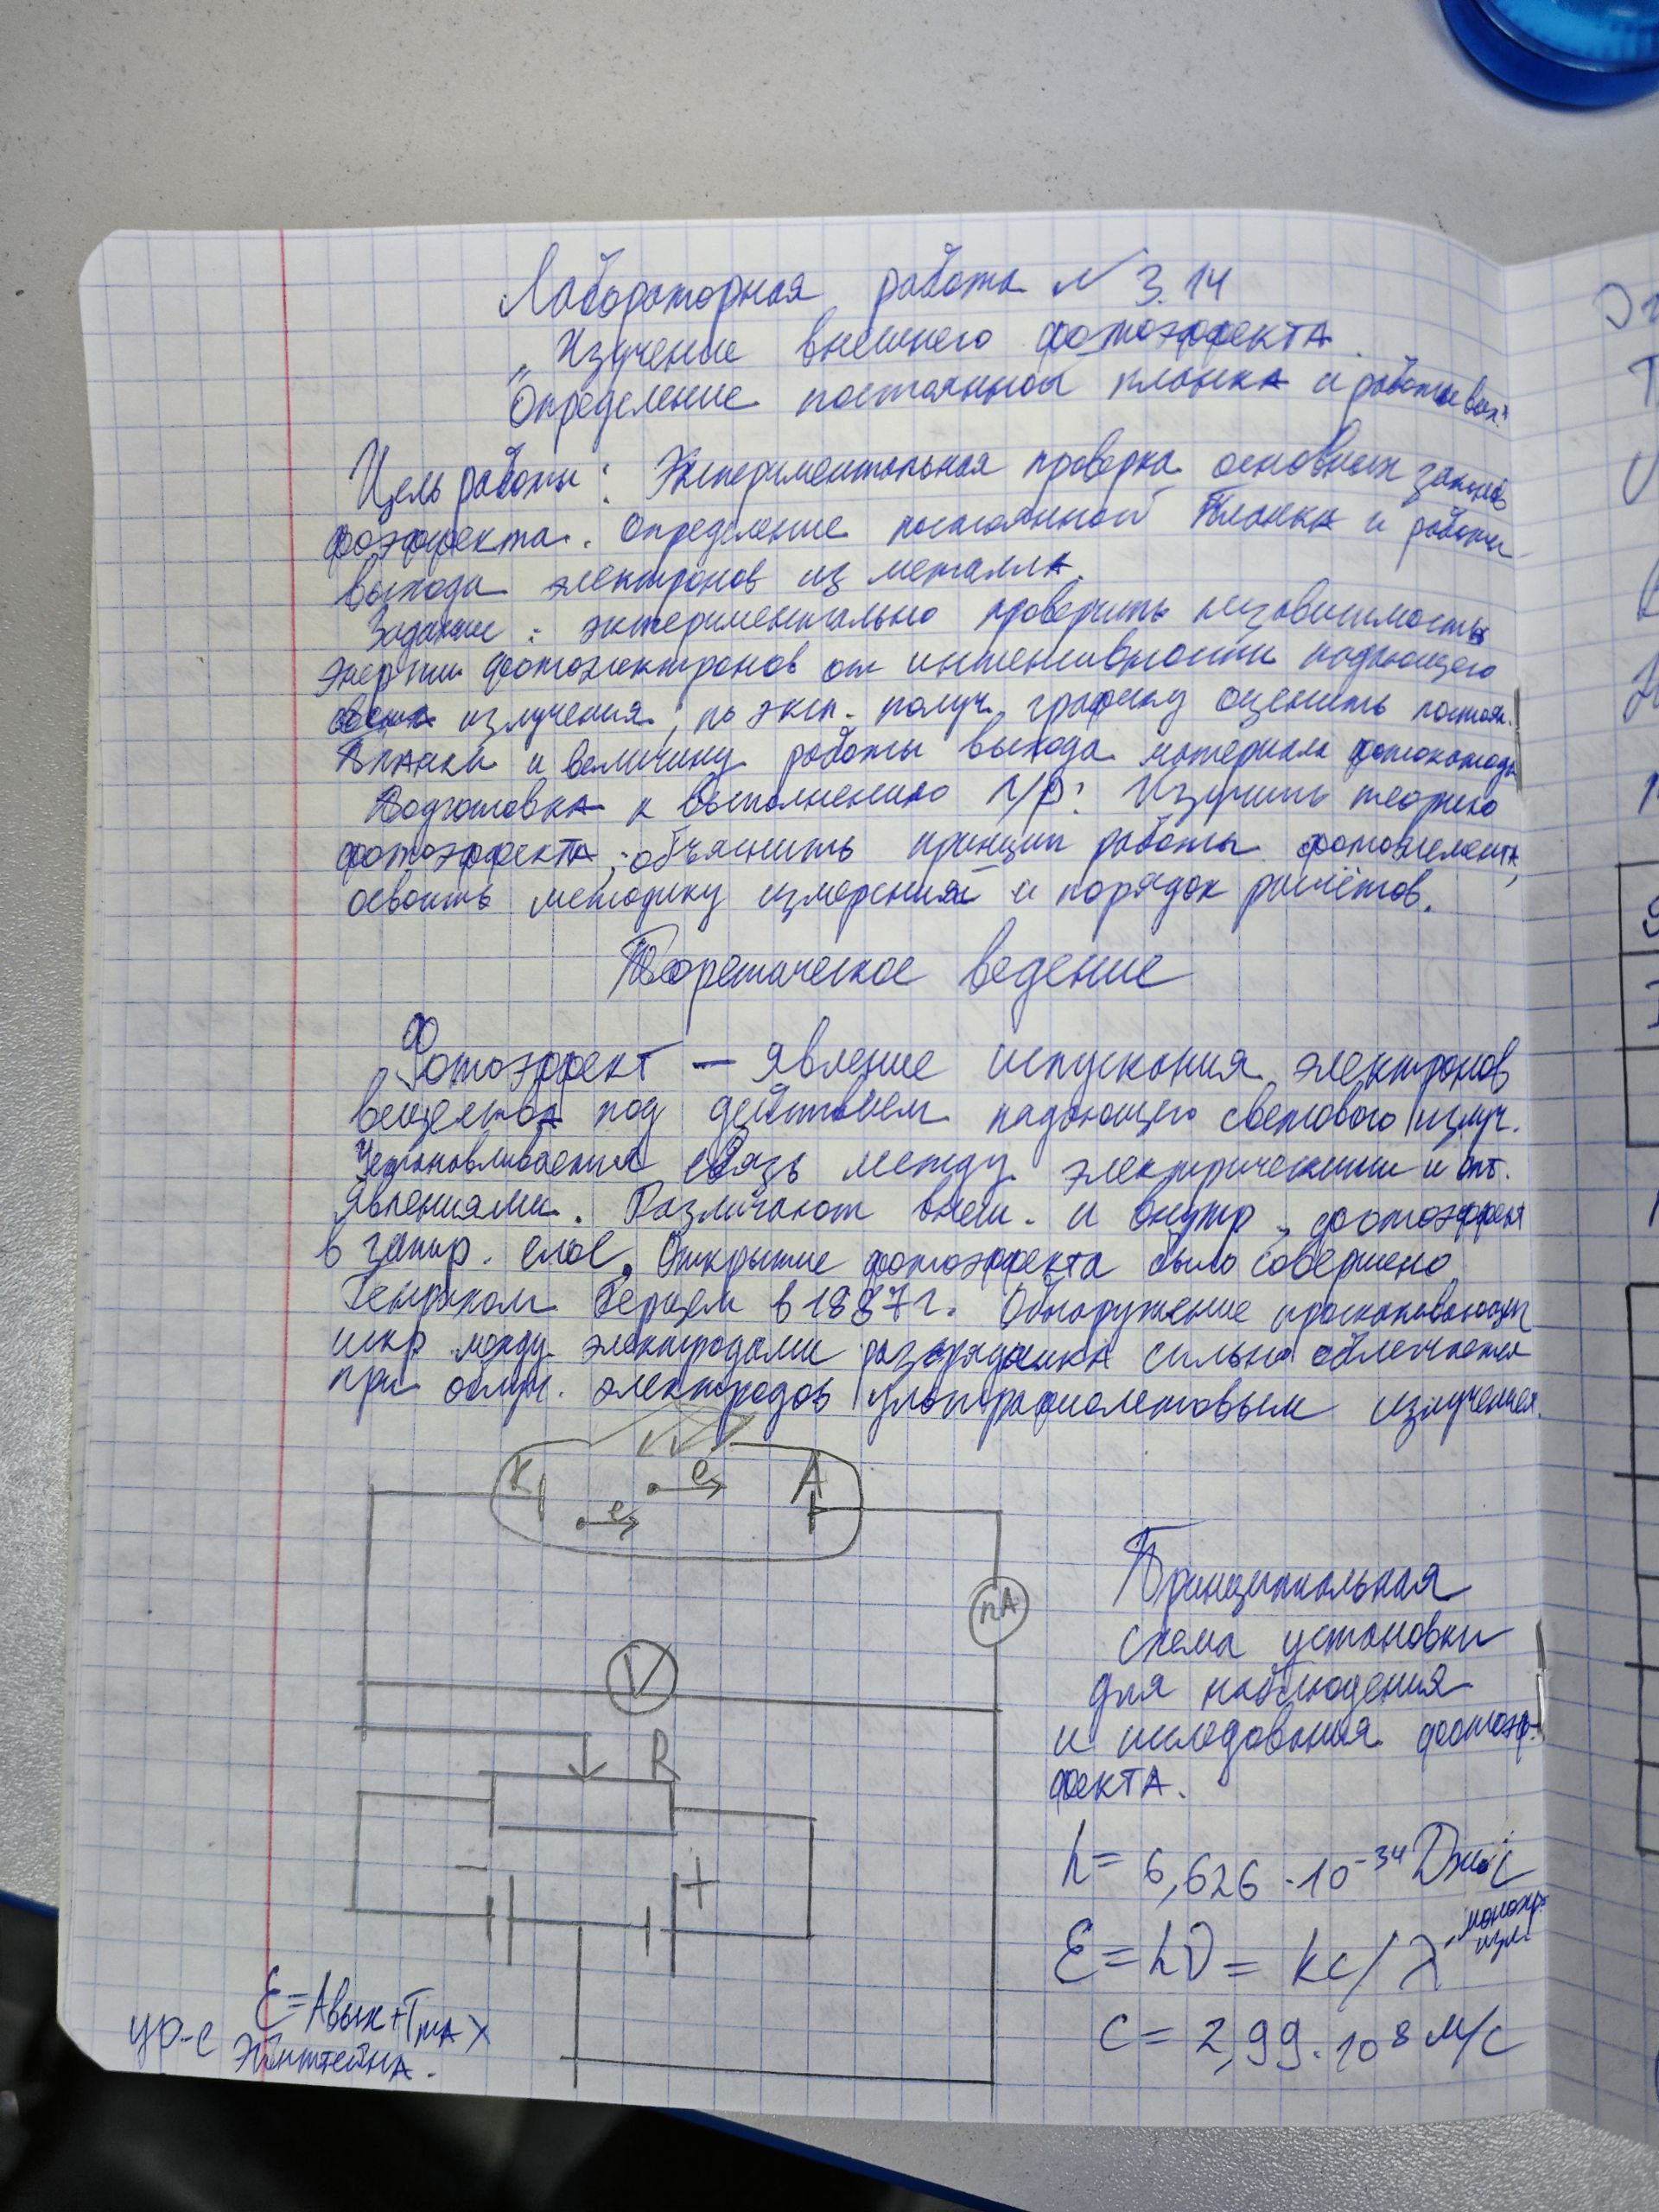 Лабораторная работа N 3.14
„Изучение внешнего фотоэффекта.
Определение постоянной планка и работы вых."
Цель работы: Экспериментальная проверка основных законов
фоэффекта. Определение постоянной Планка и работы
выхода электронов из металла.
Задание: экспериментально проверить независимость
энергии фотоэлектронов от интенсивности падающего
излучения, по эксп. получ. графику оценить постоян.
Планка и величину работы выхода материала фотокатода
Подготовка к выполнению л/р: Изучить теорию
фотоэффекта, объяснить принцип работы фотоэлемента,
освоить методику измерений и порядок расчётов.
Теоретическое ведение
Фотоэффект — явление испускания электронов
вещества под действием падающего светового излуч.
Устанавливается связь между электрическими и опт.
явлениями. Различают внеш. и внутр., фотоэффект
в запир. слое. Открытие фотоэффекта было совершено
Генрихом Герцем в 1887 г. Обнаружение проскакивающих
искр между электродами разрядника сильно облегчается
при облуч. электродов ультрафиолетовым излучением.
K e A
e
nA
V
R
- +
Принципиальная
схема установки
для наблюдения
и исследования фотоэф-
фекта.
h = 6,626 · 10⁻³⁴ Дж·с
ε = hν = hc/λ - монохр. изл.
c = 2,99 · 10⁸ м/с
ур-е ε = Aвых + Tmax
Эйнштейна.